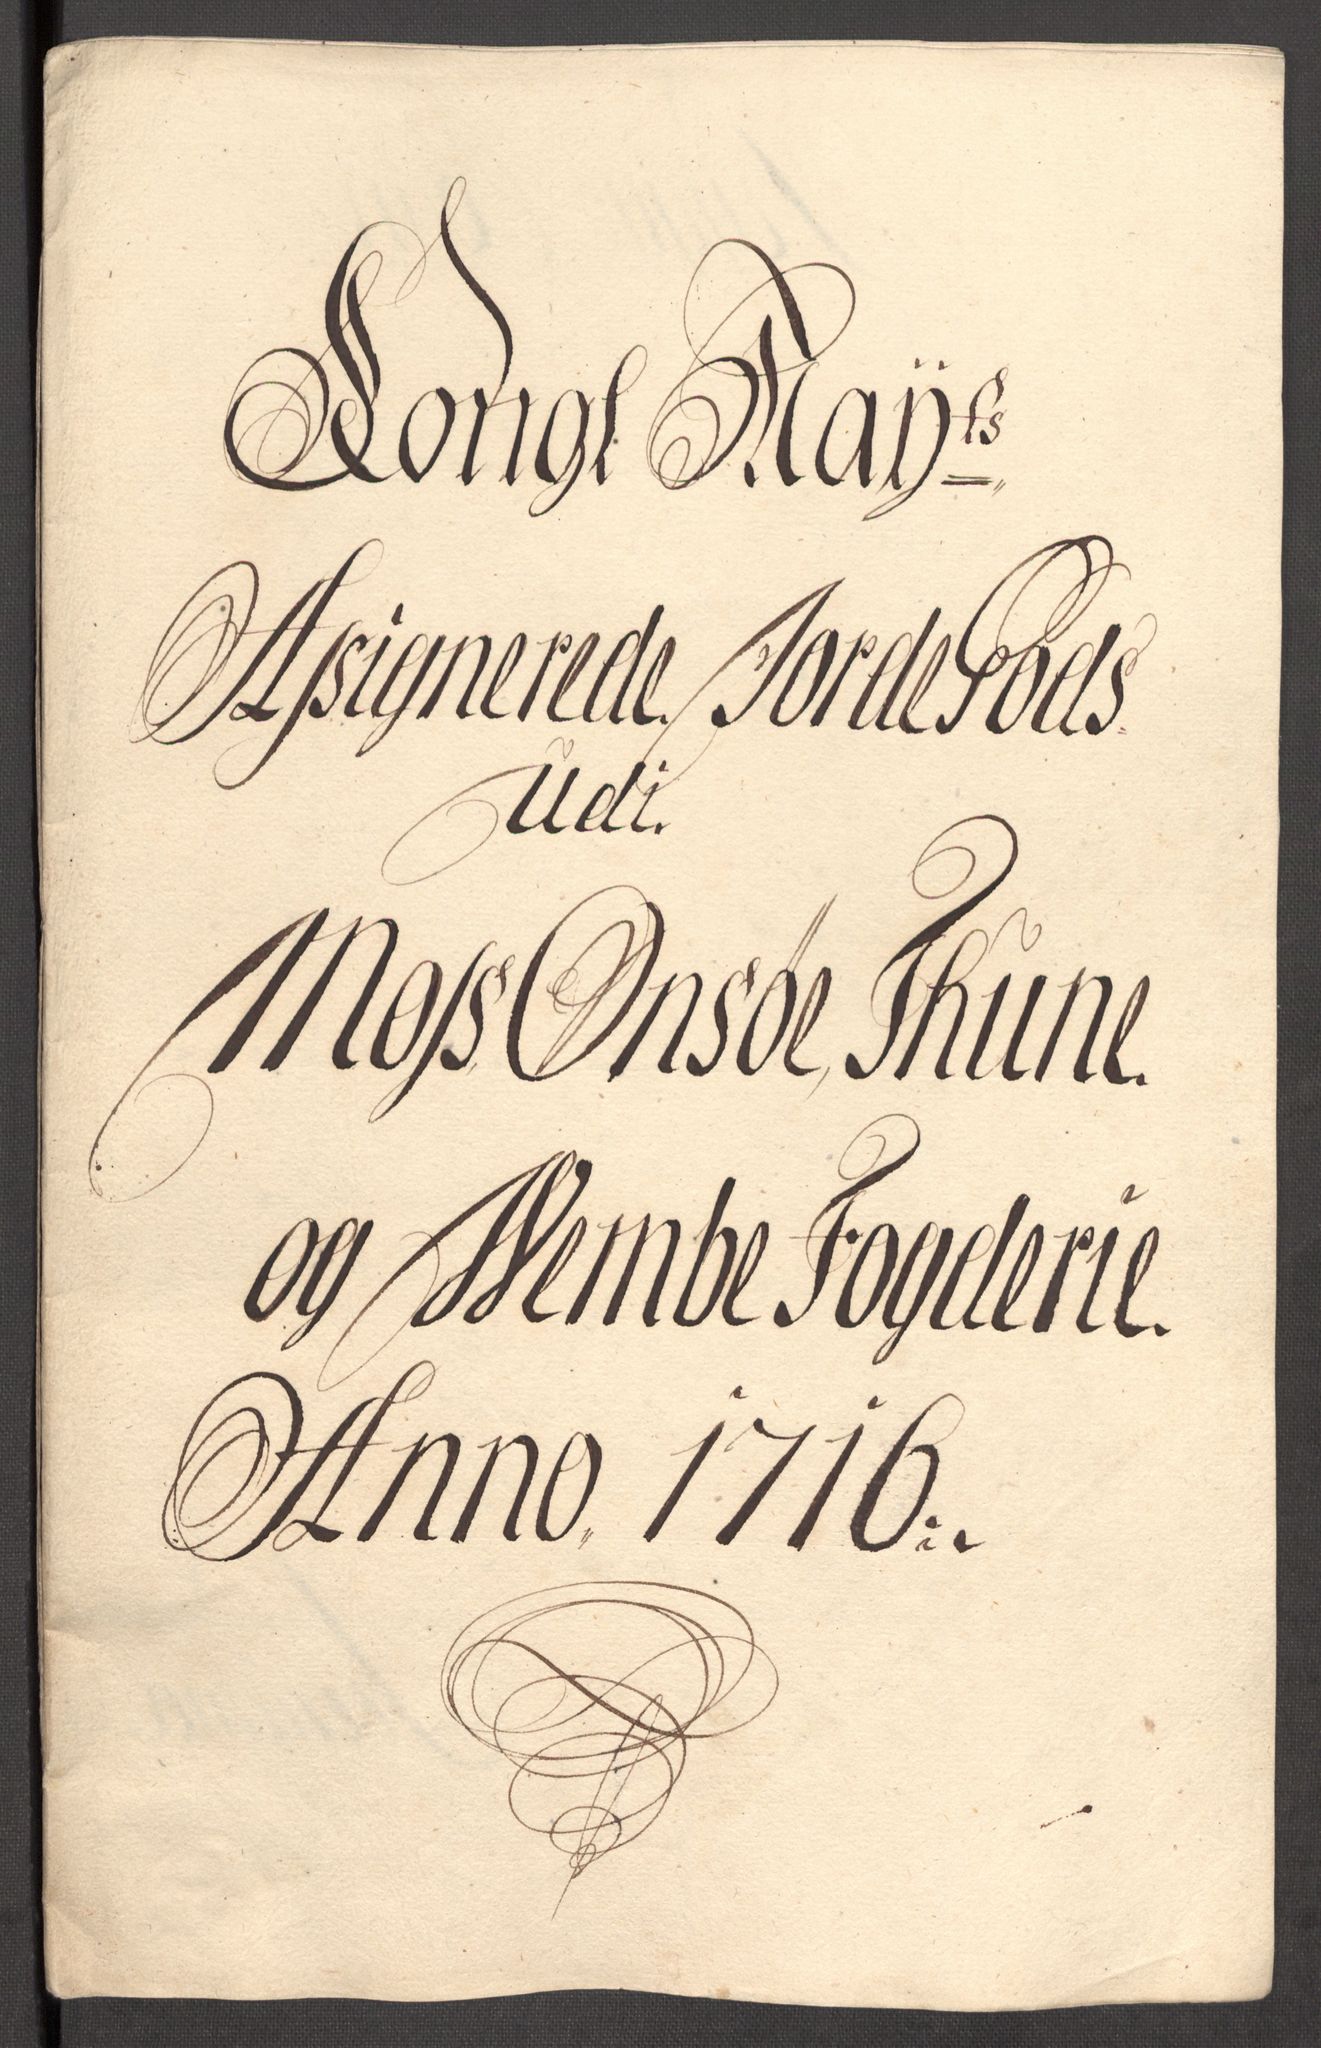 Kongl Maÿts
Assignerede Jorde Gods
udi.
Moss, Onsöe, Thune.
og Wembe Fogderie.
Anno. 1716.